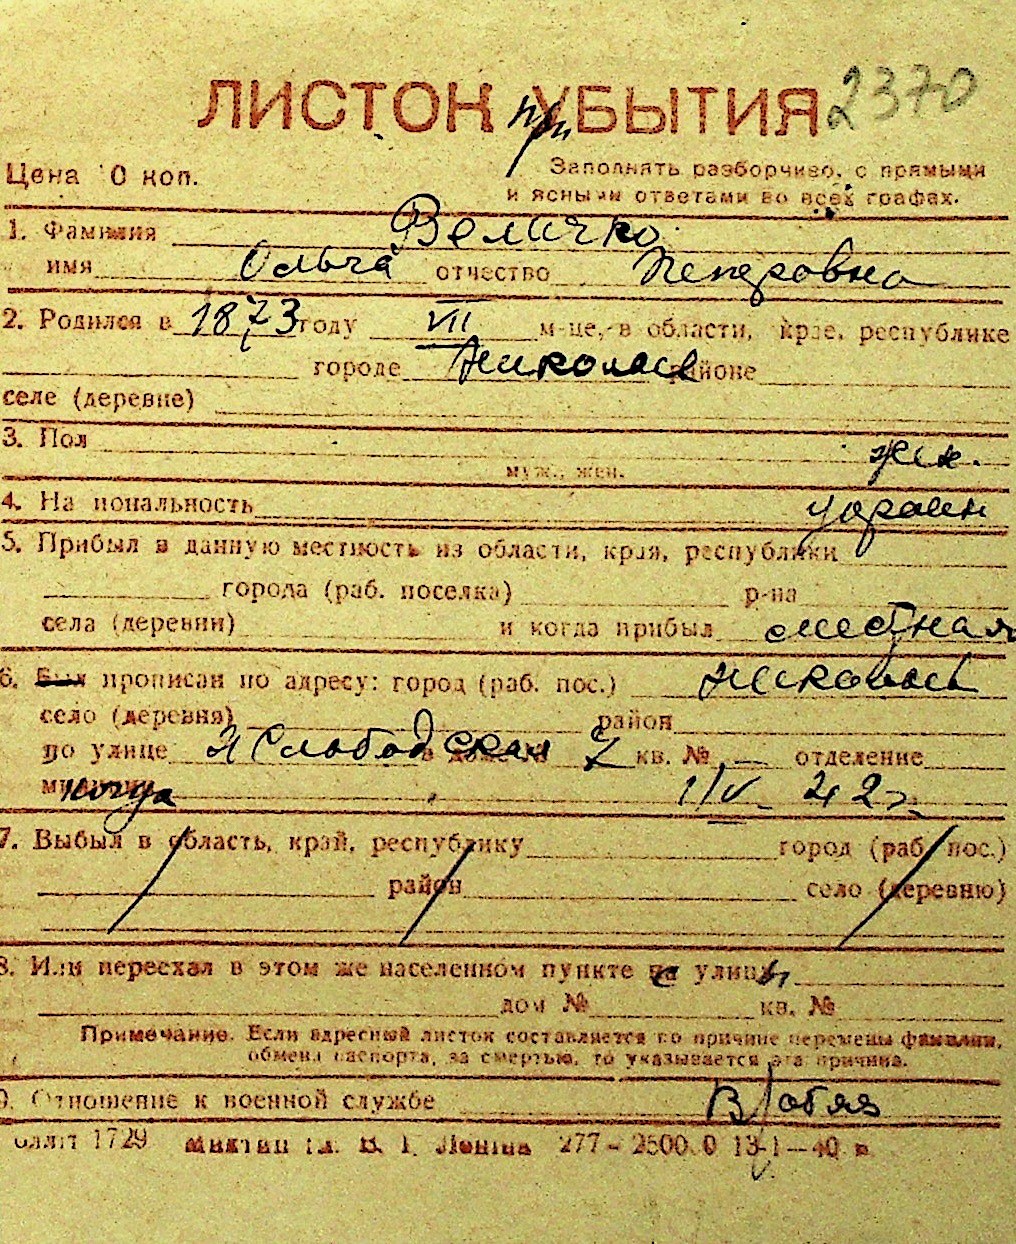 ЛИСТОК УБЫТИЯ при 2370
Цена 10 коп. Заполнять разборчиво, с прямыми
и ясными ответами во всех графах.
1. Фамилия Величко
имя Ольга отчество Петровна
2. Родился в 1873 году VII м-це, в области, крае, республике
городе Николаев районе
селе (деревне)
3. Пол жен.
муж., жен.
4. Национальность украин
5. Прибыл в данную местность из области, края, республики
города (раб. поселка) р-на
села (деревни) и когда прибыл местная
6. Был прописан по адресу: город (раб. пос.) Николаев
село (деревня) район
по улице Слободская в доме № 7 кв. № — отделение
милиции когда 1/V- 42 г.
7. Выбыл в область, край, республику город (раб. пос.)
район село (деревню)
8. Или переехал в этом же населенном пункте с улицы
дом № кв. №
Примечание. Если адресный листок составляется по причине перемены фамилии,
обмена паспорта, за смертью, то указывается эта причина.
9. Отношение к военной службе В/обяз
1729 Ленина 277 — 2500 0 13-I—40 г.